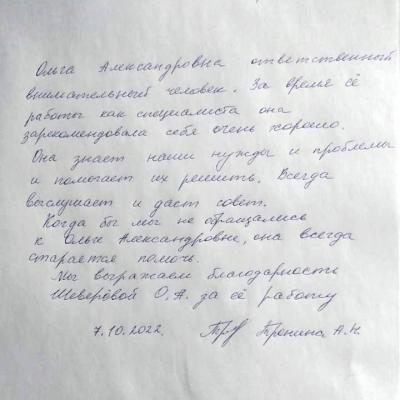 Ольга Александровна ответственный
внимательный человек. За время её
работы как специалиста она
зарекомендовала себя очень хорошо.
Она знает наши нужды и проблемы
и помогает их решить. Всегда
выслушает и даст совет.
Когда бы мы не обращались
к Ольге Александровне, она всегда
старается помочь.
Мы выражаем благодарность
Шеверовой О.А. за её работу
7.10.2022. Тренина А.Н.